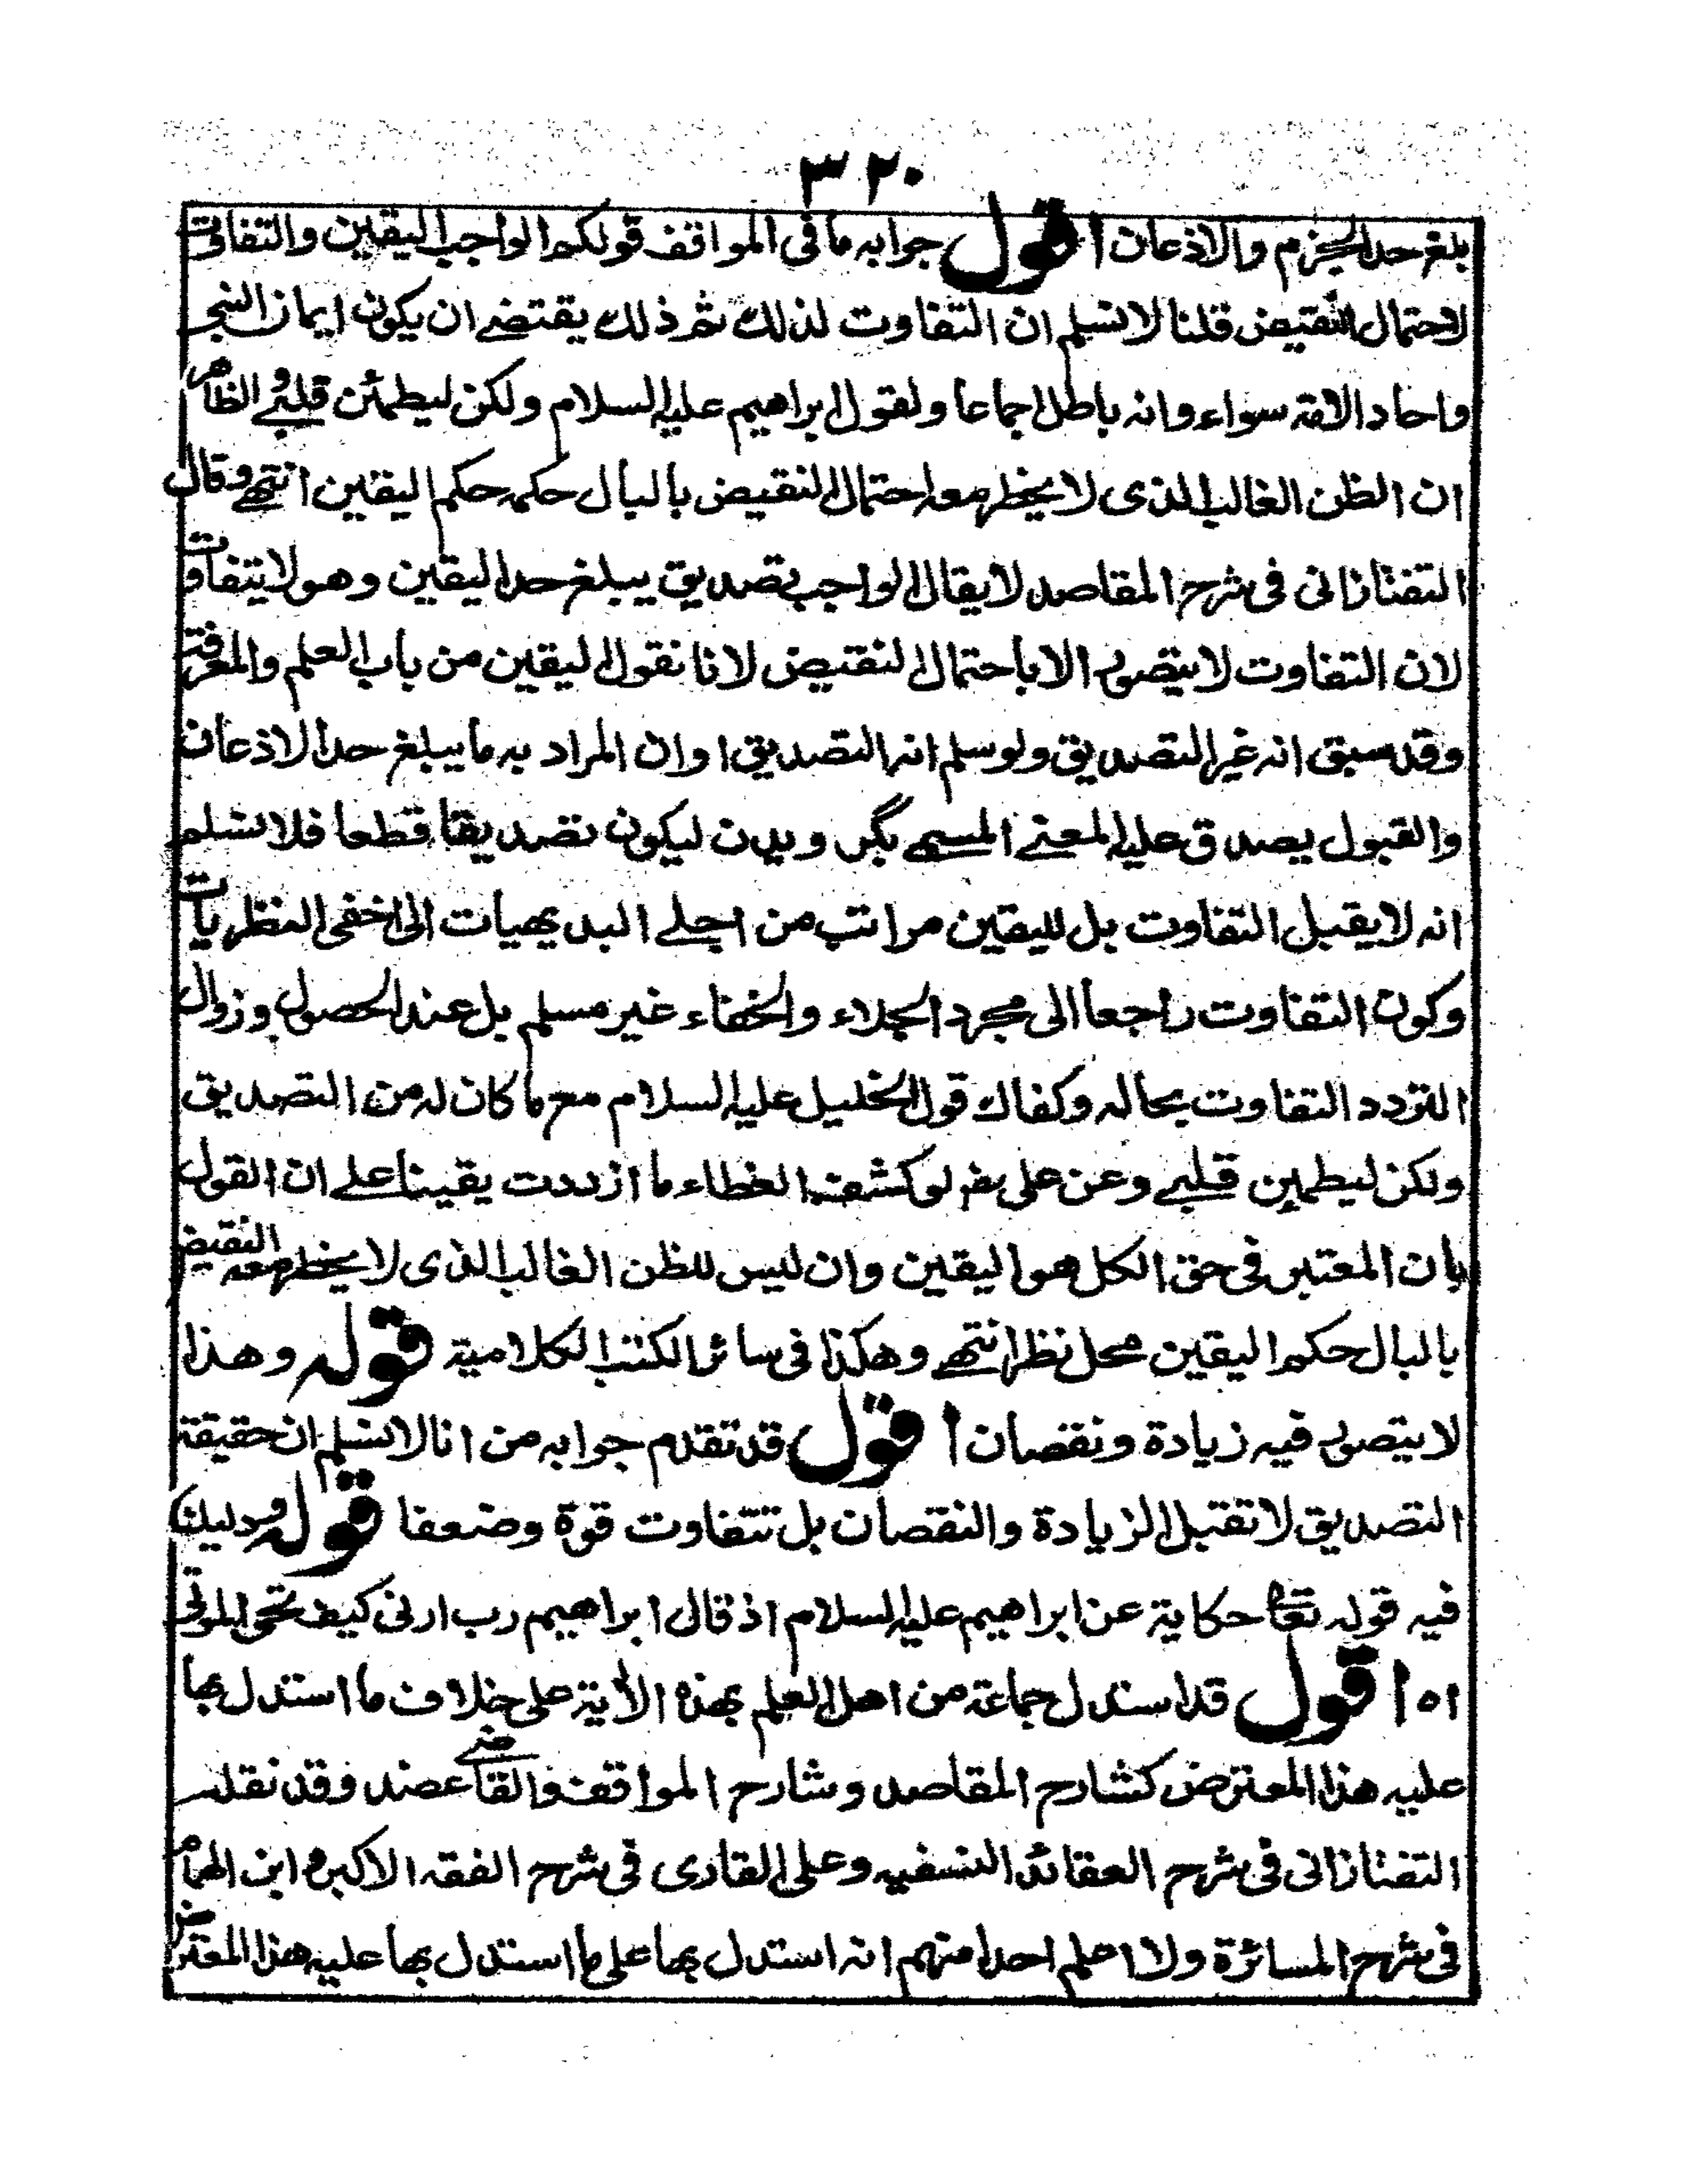 ٣٢٠
بلغ حد الجزم والاذعان اقول جوابه ما فى المواقف قولكم الواجب اليقين والتفاوت
لاحتمال النقيض قلنا لا نسلم ان التفاوت لذلك ثم ذلك يقتضے ان يكون ايمان النبى
واحاد الامة سواء وانه باطل اجماعا ولقول ابراهيم عليه السلام ولكن ليطمئن قلبے والظاهر
ان الظن الغالب الذى لا يخطر معه احتمال النقيض بالبال حكمه حكم اليقين انتهے وقال
التفتازانى فى شرح المقاصد لا يقال الواجب تصديق يبلغ حد اليقين وهو لا يتفاوت
لان التفاوت لا يتصور الا باحتمال النقيض لانا نقول اليقين من باب العلم والمعرفة
وقد سبق انه غير التصديق ولو سلم انه التصديق او ان المراد به ما يبلغ حد الاذعان
والقبول يصدق عليه المعنے المسمے بگرويدن ليكون تصديقا قطعا فلا نسلم
انه لا يقبل التفاوت بل لليقين مراتب من اجلے البديهيات الى اخفى النظريات
وكون التفاوت راجعا الى مجرد الجلاء والخفاء غير مسلم بل عند الحصول وزوال
التردد التفاوت بحاله وكفاك قول الخليل عليه السلام مع ما كان له من التصديق
ولكن ليطمئن قلبے وعن على رض لو كشف الغطاء ما ازددت يقينا علے ان القول
بان المعتبر فى حق الكل هو اليقين وان ليس للظن الغالب الذى لا يخطر معه النقيض
بالبال حكم اليقين محل نظر انتهے وهكذا فى سائر الكتب الكلامية قوله وهذا
لا يتصور فيه زيادة ونقصان اقول قد تقدم جوابه من انا لا نسلم ان حقيقة
التصديق لا تقبل الزيادة والنقصان بل تتفاوت قوة وضعفا قوله ودليلك
فيه قوله تعا حكاية عن ابراهيم عليه السلام اذ قال ابراهيم رب ارنى كيف تحى الموتى
اه اقول قد استدل جماعة من اهل العلم بهذه الاية على خلاف ما استدل بها
عليه هذا المعترض كشارح المقاصد وشارح المواقف والقاضے عضد وقد نقله
التفتازانى فى شرح العقائد النسفيه وعلى القارى فى شرح الفقه الاكبر و ابن الهمام
فى شرح المسائرة ولا اعلم احدا منهم انه استدل بها على ما استدل بها عليه هذا المعترض